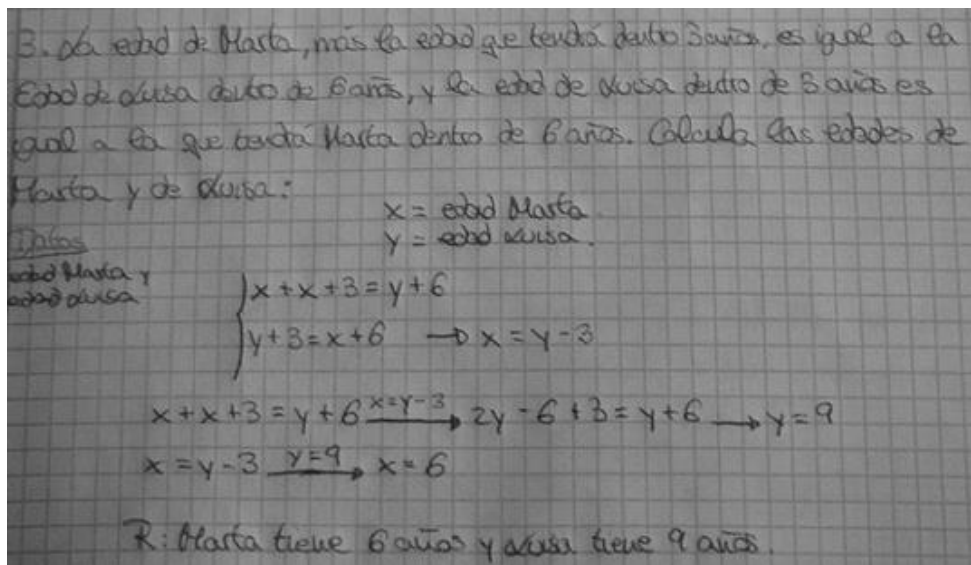 3. La edad de Marta, más la edad que tendrá dentro 3 años, es igual a la
Edad de Luisa dentro de 6 años, y la edad de Luisa dentro de 3 años es
igual a la que tendrá Marta dentro de 6 años. Calcula las edades de
Marta y de Luisa:
x = edad Marta.
y = edad Luisa.
Datos
edad Marta y
edad Luisa
x + x + 3 = y + 6
y + 3 = x + 6 → x = y - 3
x + x + 3 = y + 6 x=y-3→ 2y - 6 + 3 = y + 6 → y = 9
x = y - 3 y=9→ x = 6
R: Marta tiene 6 años y Luisa tiene 9 años.